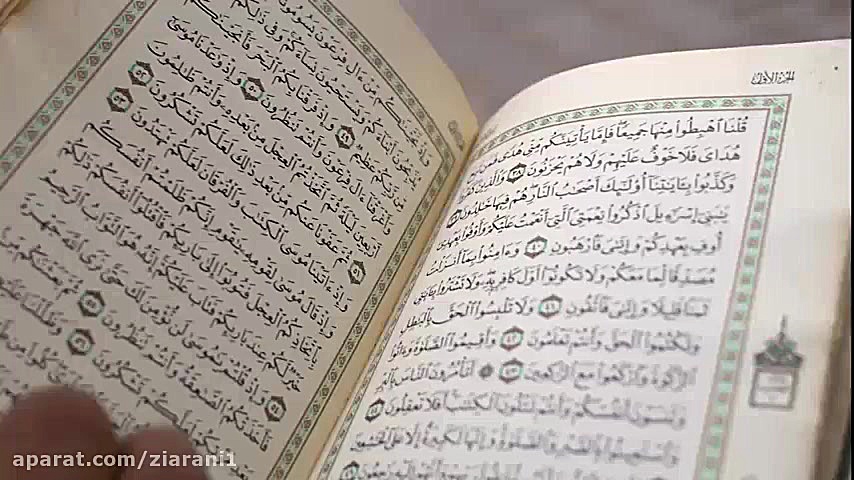 الجزء الأول
قُلْنَا ٱهْبِطُوا۟ مِنْهَا جَمِيعًا فَإِمَّا يَأْتِيَنَّكُم مِّنِّى هُدًى فَمَن
هُدَاىَ فَلَا خَوْفٌ عَلَيْهِمْ وَلَا هُمْ يَحْزَنُونَ ٣٨ وَٱلَّذِينَ
وَكَذَّبُوا۟ بِـَٔايَـٰتِنَآ أُو۟لَـٰٓئِكَ أَصْحَـٰبُ ٱلنَّارِ هُمْ فِيهَا خَـٰلِدُونَ
يَـٰبَنِىٓ إِسْرَٰٓءِيلَ ٱذْكُرُوا۟ نِعْمَتِىَ ٱلَّتِىٓ أَنْعَمْتُ عَلَيْكُمْ وَأَوْفُوا۟ بِعَهْدِىٓ
أُوفِ بِعَهْدِكُمْ وَإِيَّـٰىَ فَٱرْهَبُونِ ٤٠ وَءَامِنُوا۟ بِمَآ أَنزَلْتُ
مُصَدِّقًا لِّمَا مَعَكُمْ وَلَا تَكُونُوٓا۟ أَوَّلَ كَافِرٍۭ بِهِۦ وَلَا تَشْتَرُوا۟ بِـَٔايَـٰتِى
ثَمَنًا قَلِيلًا وَإِيَّـٰىَ فَٱتَّقُونِ ٤١ وَلَا تَلْبِسُوا۟ ٱلْحَقَّ بِٱلْبَـٰطِلِ
وَتَكْتُمُوا۟ ٱلْحَقَّ وَأَنتُمْ تَعْلَمُونَ ٤٢ وَأَقِيمُوا۟ ٱلصَّلَوٰةَ وَءَاتُوا۟
ٱلزَّكَوٰةَ وَٱرْكَعُوا۟ مَعَ ٱلرَّٰكِعِينَ ٤٣ أَتَأْمُرُونَ ٱلنَّاسَ بِٱلْبِرِّ
وَتَنسَوْنَ أَنفُسَكُمْ وَأَنتُمْ تَتْلُونَ ٱلْكِتَـٰبَ أَفَلَا تَعْقِلُونَ ٤٤
وَٱسْتَعِينُوا۟ بِٱلصَّبْرِ وَٱلصَّلَوٰةِ وَإِنَّهَا لَكَبِيرَةٌ إِلَّا عَلَى ٱلْخَـٰشِعِينَ
وَإِذْ نَجَّيْنَـٰكُم مِّنْ ءَالِ فِرْعَوْنَ يَسُومُونَكُمْ
يُذَبِّحُونَ أَبْنَآءَكُمْ وَيَسْتَحْيُونَ نِسَآءَكُمْ وَفِى ذَٰلِكُم
مِّن رَّبِّكُمْ عَظِيمٌ ٤٩ وَإِذْ فَرَقْنَا بِكُمُ ٱلْبَحْرَ فَأَنجَيْنَـٰكُمْ
وَأَغْرَقْنَآ ءَالَ فِرْعَوْنَ وَأَنتُمْ تَنظُرُونَ ٥٠ وَإِذْ وَٰعَدْنَا مُوسَىٰٓ
أَرْبَعِينَ لَيْلَةً ثُمَّ ٱتَّخَذْتُمُ ٱلْعِجْلَ مِنۢ بَعْدِهِۦ وَأَنتُمْ ظَـٰلِمُونَ ٥١
ثُمَّ عَفَوْنَا عَنكُم مِّنۢ بَعْدِ ذَٰلِكَ لَعَلَّكُمْ تَشْكُرُونَ ٥٢
وَإِذْ ءَاتَيْنَا مُوسَى ٱلْكِتَـٰبَ وَٱلْفُرْقَانَ لَعَلَّكُمْ تَهْتَدُونَ ٥٣
وَإِذْ قَالَ مُوسَىٰ لِقَوْمِهِۦ يَـٰقَوْمِ إِنَّكُمْ ظَلَمْتُمْ أَنفُسَكُم
بِٱتِّخَاذِكُمُ ٱلْعِجْلَ فَتُوبُوٓا۟ إِلَىٰ بَارِئِكُمْ فَٱقْتُلُوٓا۟ أَنفُسَكُمْ ذَٰلِكُمْ
خَيْرٌ لَّكُمْ عِندَ بَارِئِكُمْ فَتَابَ عَلَيْكُمْ إِنَّهُۥ هُوَ ٱلتَّوَّابُ ٱلرَّحِيمُ ٥٤
وَإِذْ قُلْتُمْ يَـٰمُوسَىٰ لَن نُّؤْمِنَ لَكَ حَتَّىٰ نَرَى ٱللَّهَ جَهْرَةً
فَأَخَذَتْكُمُ ٱلصَّـٰعِقَةُ وَأَنتُمْ تَنظُرُونَ ٥٥ ثُمَّ بَعَثْنَـٰكُم
لَعَلَّكُمْ تَشْكُرُونَ ٥٦ وَظَلَّلْنَا
aparat.com/ziarani1